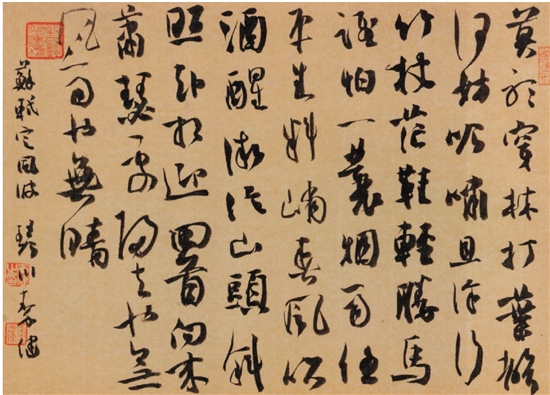 莫聽穿林打葉聲
何妨吟嘯且徐行
竹杖芒鞋輕勝馬
誰怕一蓑烟雨任
平生料峭春風吹
酒醒微冷山頭斜
照却相迎回首向來
蕭瑟處歸去也無
風雨也無晴
蘇軾定風波